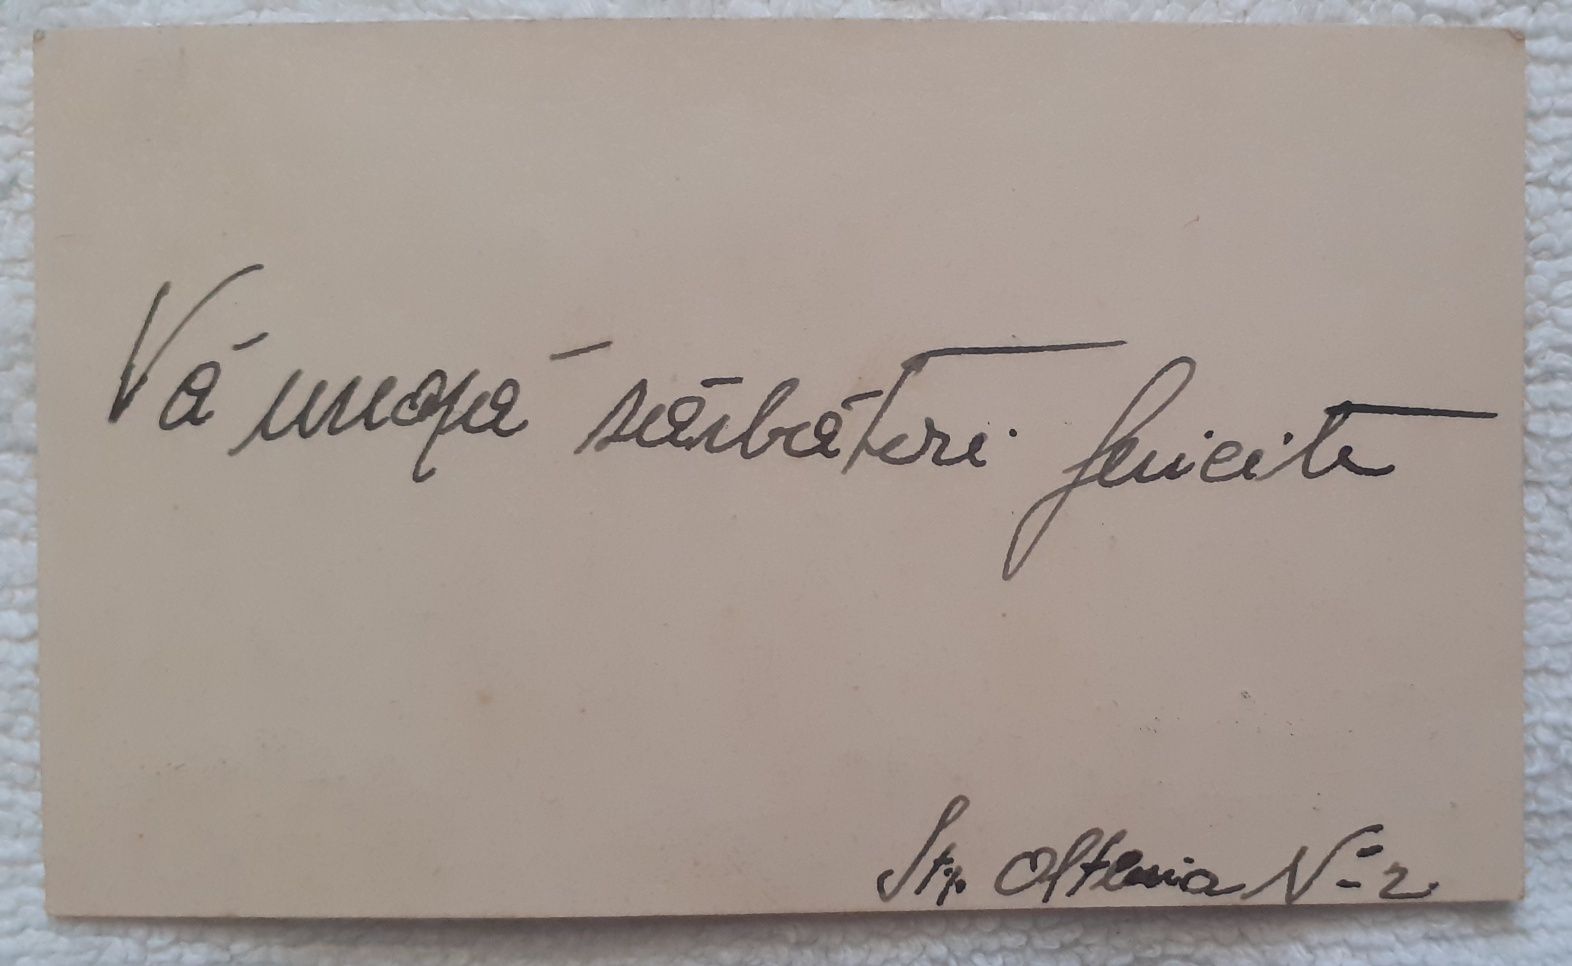 Vă urează sărbători fericite
Str. Oltenia No 2